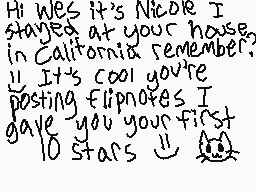 Hi Wes it's Nicole I
stayed at your house
in California remember?
!! It's cool you're
posting flipnotes I
gave you your first
10 stars !!